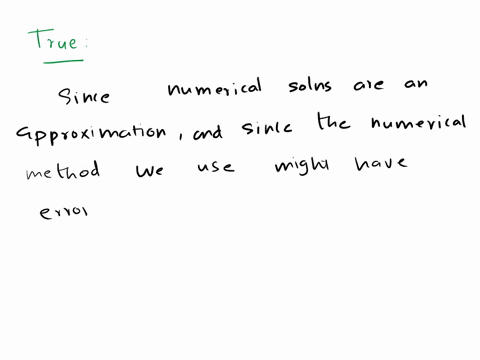 True:
Since numerical solns are an
approximation, and since the numerical
method we use might have
error